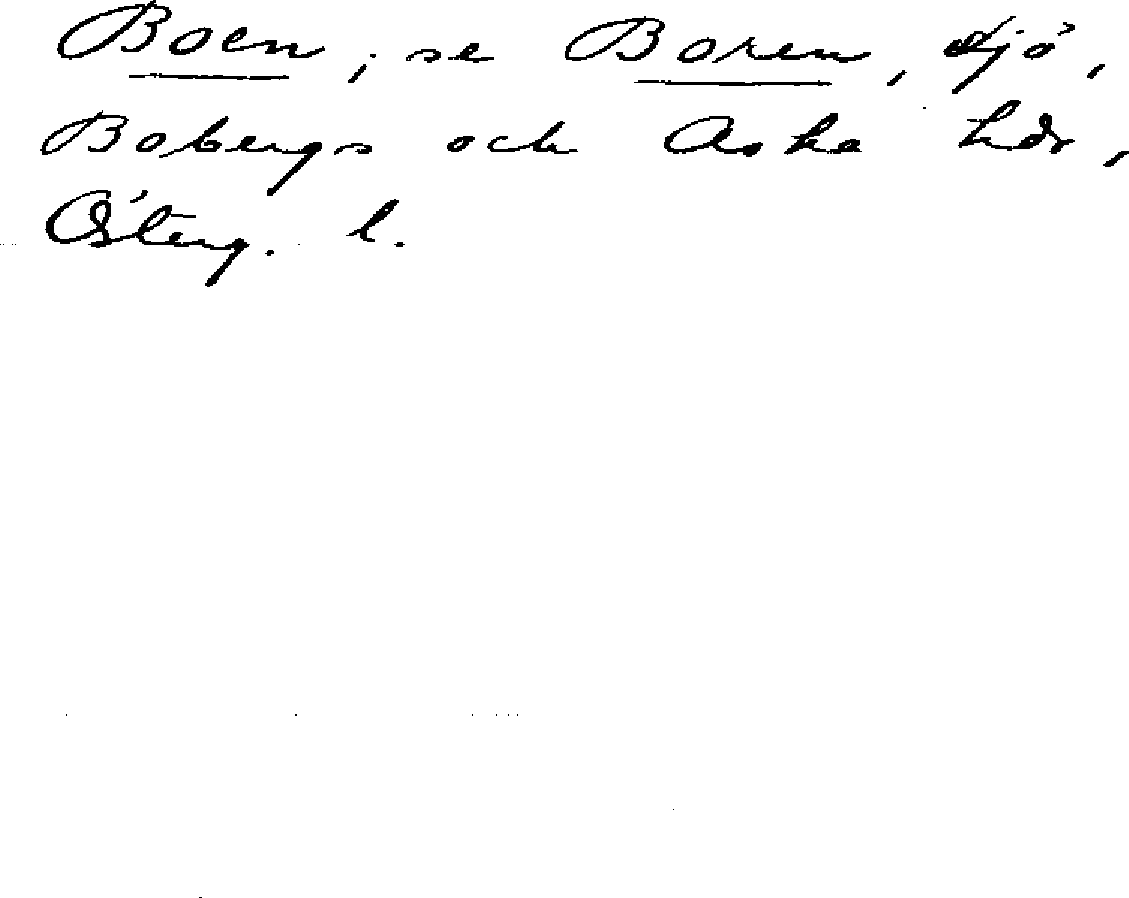 Boen, se Boren, sjö,
Bobergs och Aska hdr,
Österg. l.